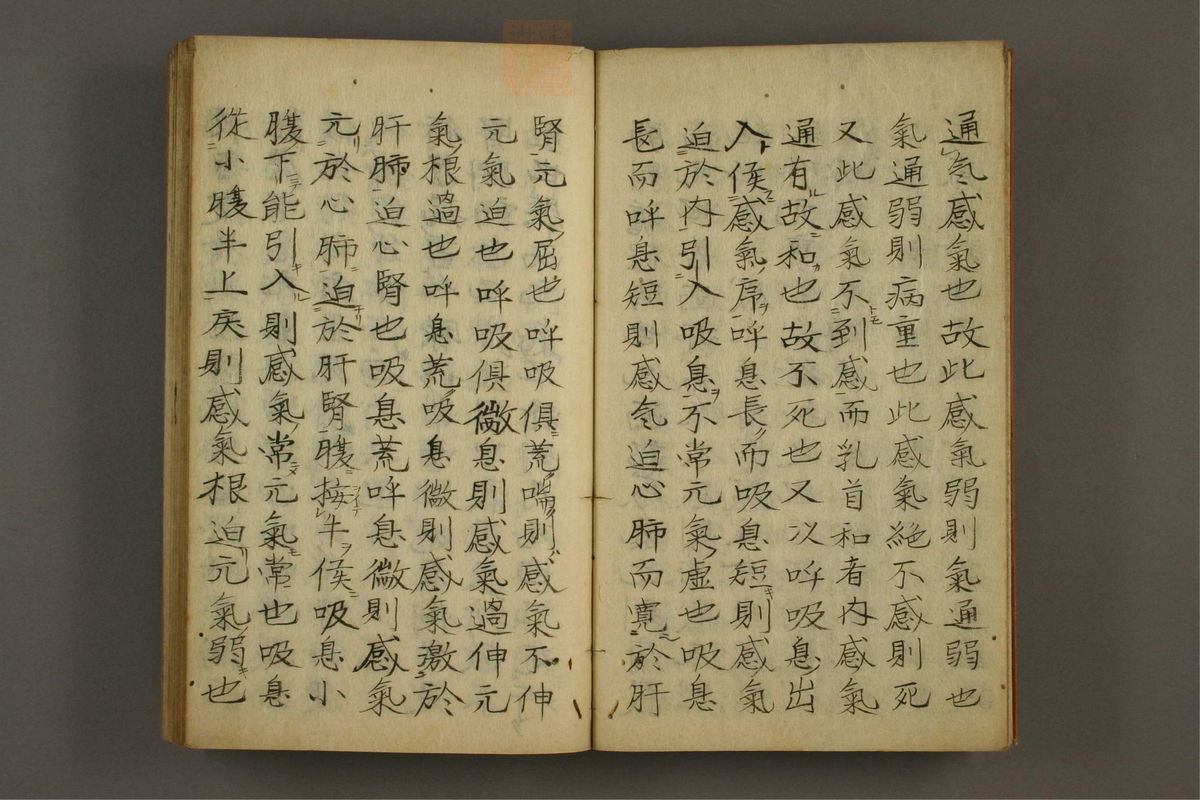 通气感氣也故此感氣弱則氣通弱也
氣通弱則病重也此感氣絶不感則死
又此感氣不到感而乳首和者内感氣
通有故和也故不死也又以呼吸息出
入候感氣席呼息長而吸息短則感氣
迫於内引入吸息不常元氣虚也吸息
長而呼息短則感气迫心肺而寛於肝
腎元氣屈也呼吸俱荒喘則感氣不伸
元氣迫也呼吸俱微息則感氣過伸元
氣根過也呼息荒吸息微則感氣激於
肝肺迫心腎也吸息荒呼息微則感氣
元於心肺迫於肝腎腹接牛候吸息小
腹下能引入則感氣常元氣常也吸息
從小腹半上戻則感氣根迫元氣弱也